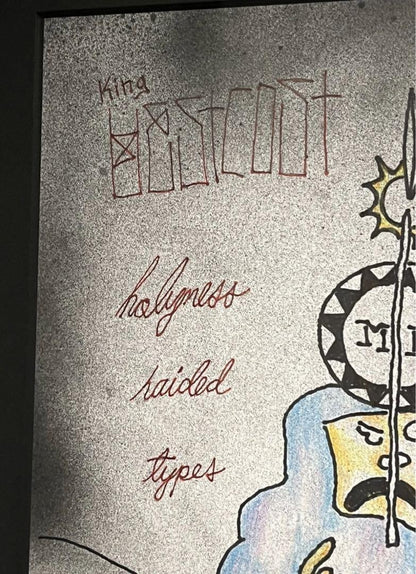 King
WESTCOAST
holyness
raided
types
M